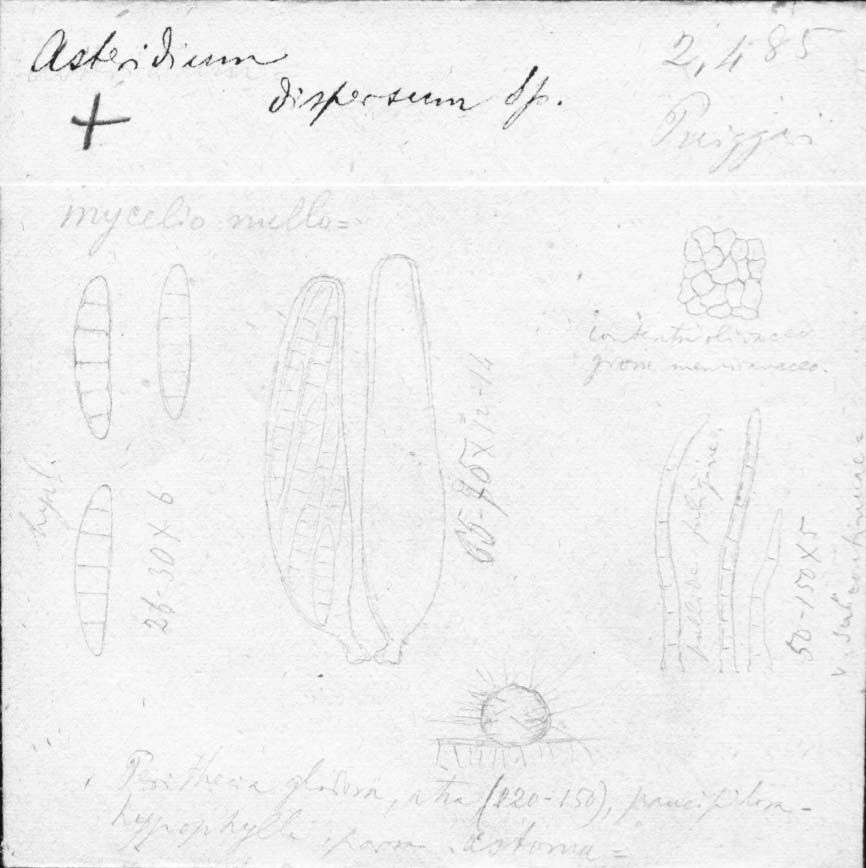 Asteridium
dispersum Sp.
2,485
Puiggari
mycelio nullo=
contextu olivaceo
membranaceo.
hyal.
26-30 X 6
65-70 X 12-14
pallide fuligineae
50-150 X 5
v. subcontinuae=
Perithecia globosa, atra (120-150), paucipilosa-
hypophylla, astoma=